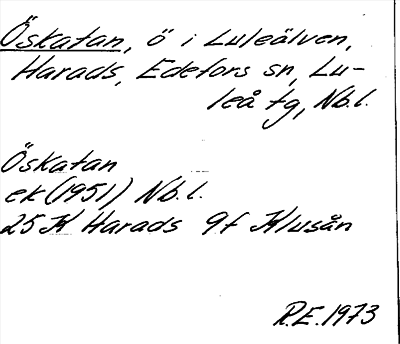 Öskatan, ö i Luleälven,
Harads, Edefors sn, Lu-
leå tg, Nb.l.
Öskatan
ek (1951) Nb.l.
25 K Harads 9f Klusån
R.E. 1973